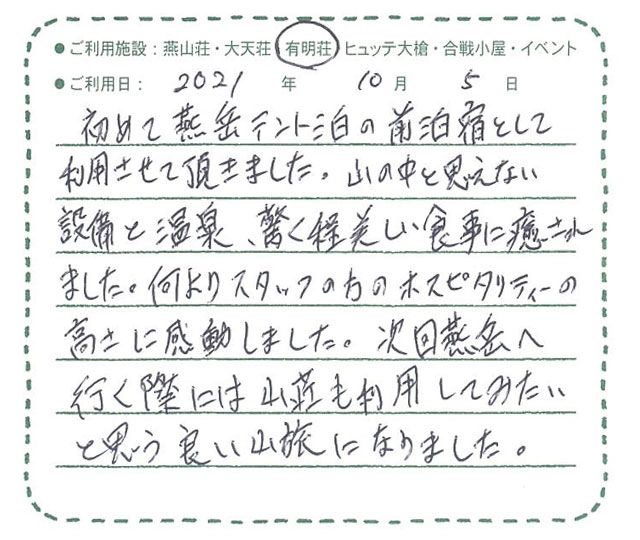 ●ご利用施設：燕山荘・大天荘・有明荘・ヒュッテ大槍・合戦小屋・イベント
●ご利用日： 2021 年 10 月 5 日
初めて燕岳テント泊の前泊宿として
利用させて頂きました。山の中と思えない
設備と温泉、驚く程美しい食事に癒され
ました。何よりスタッフの方のホスピタリティーの
高さに感動しました。次回燕岳へ
行く際には山荘も利用してみたい
と思う良い山旅になりました。